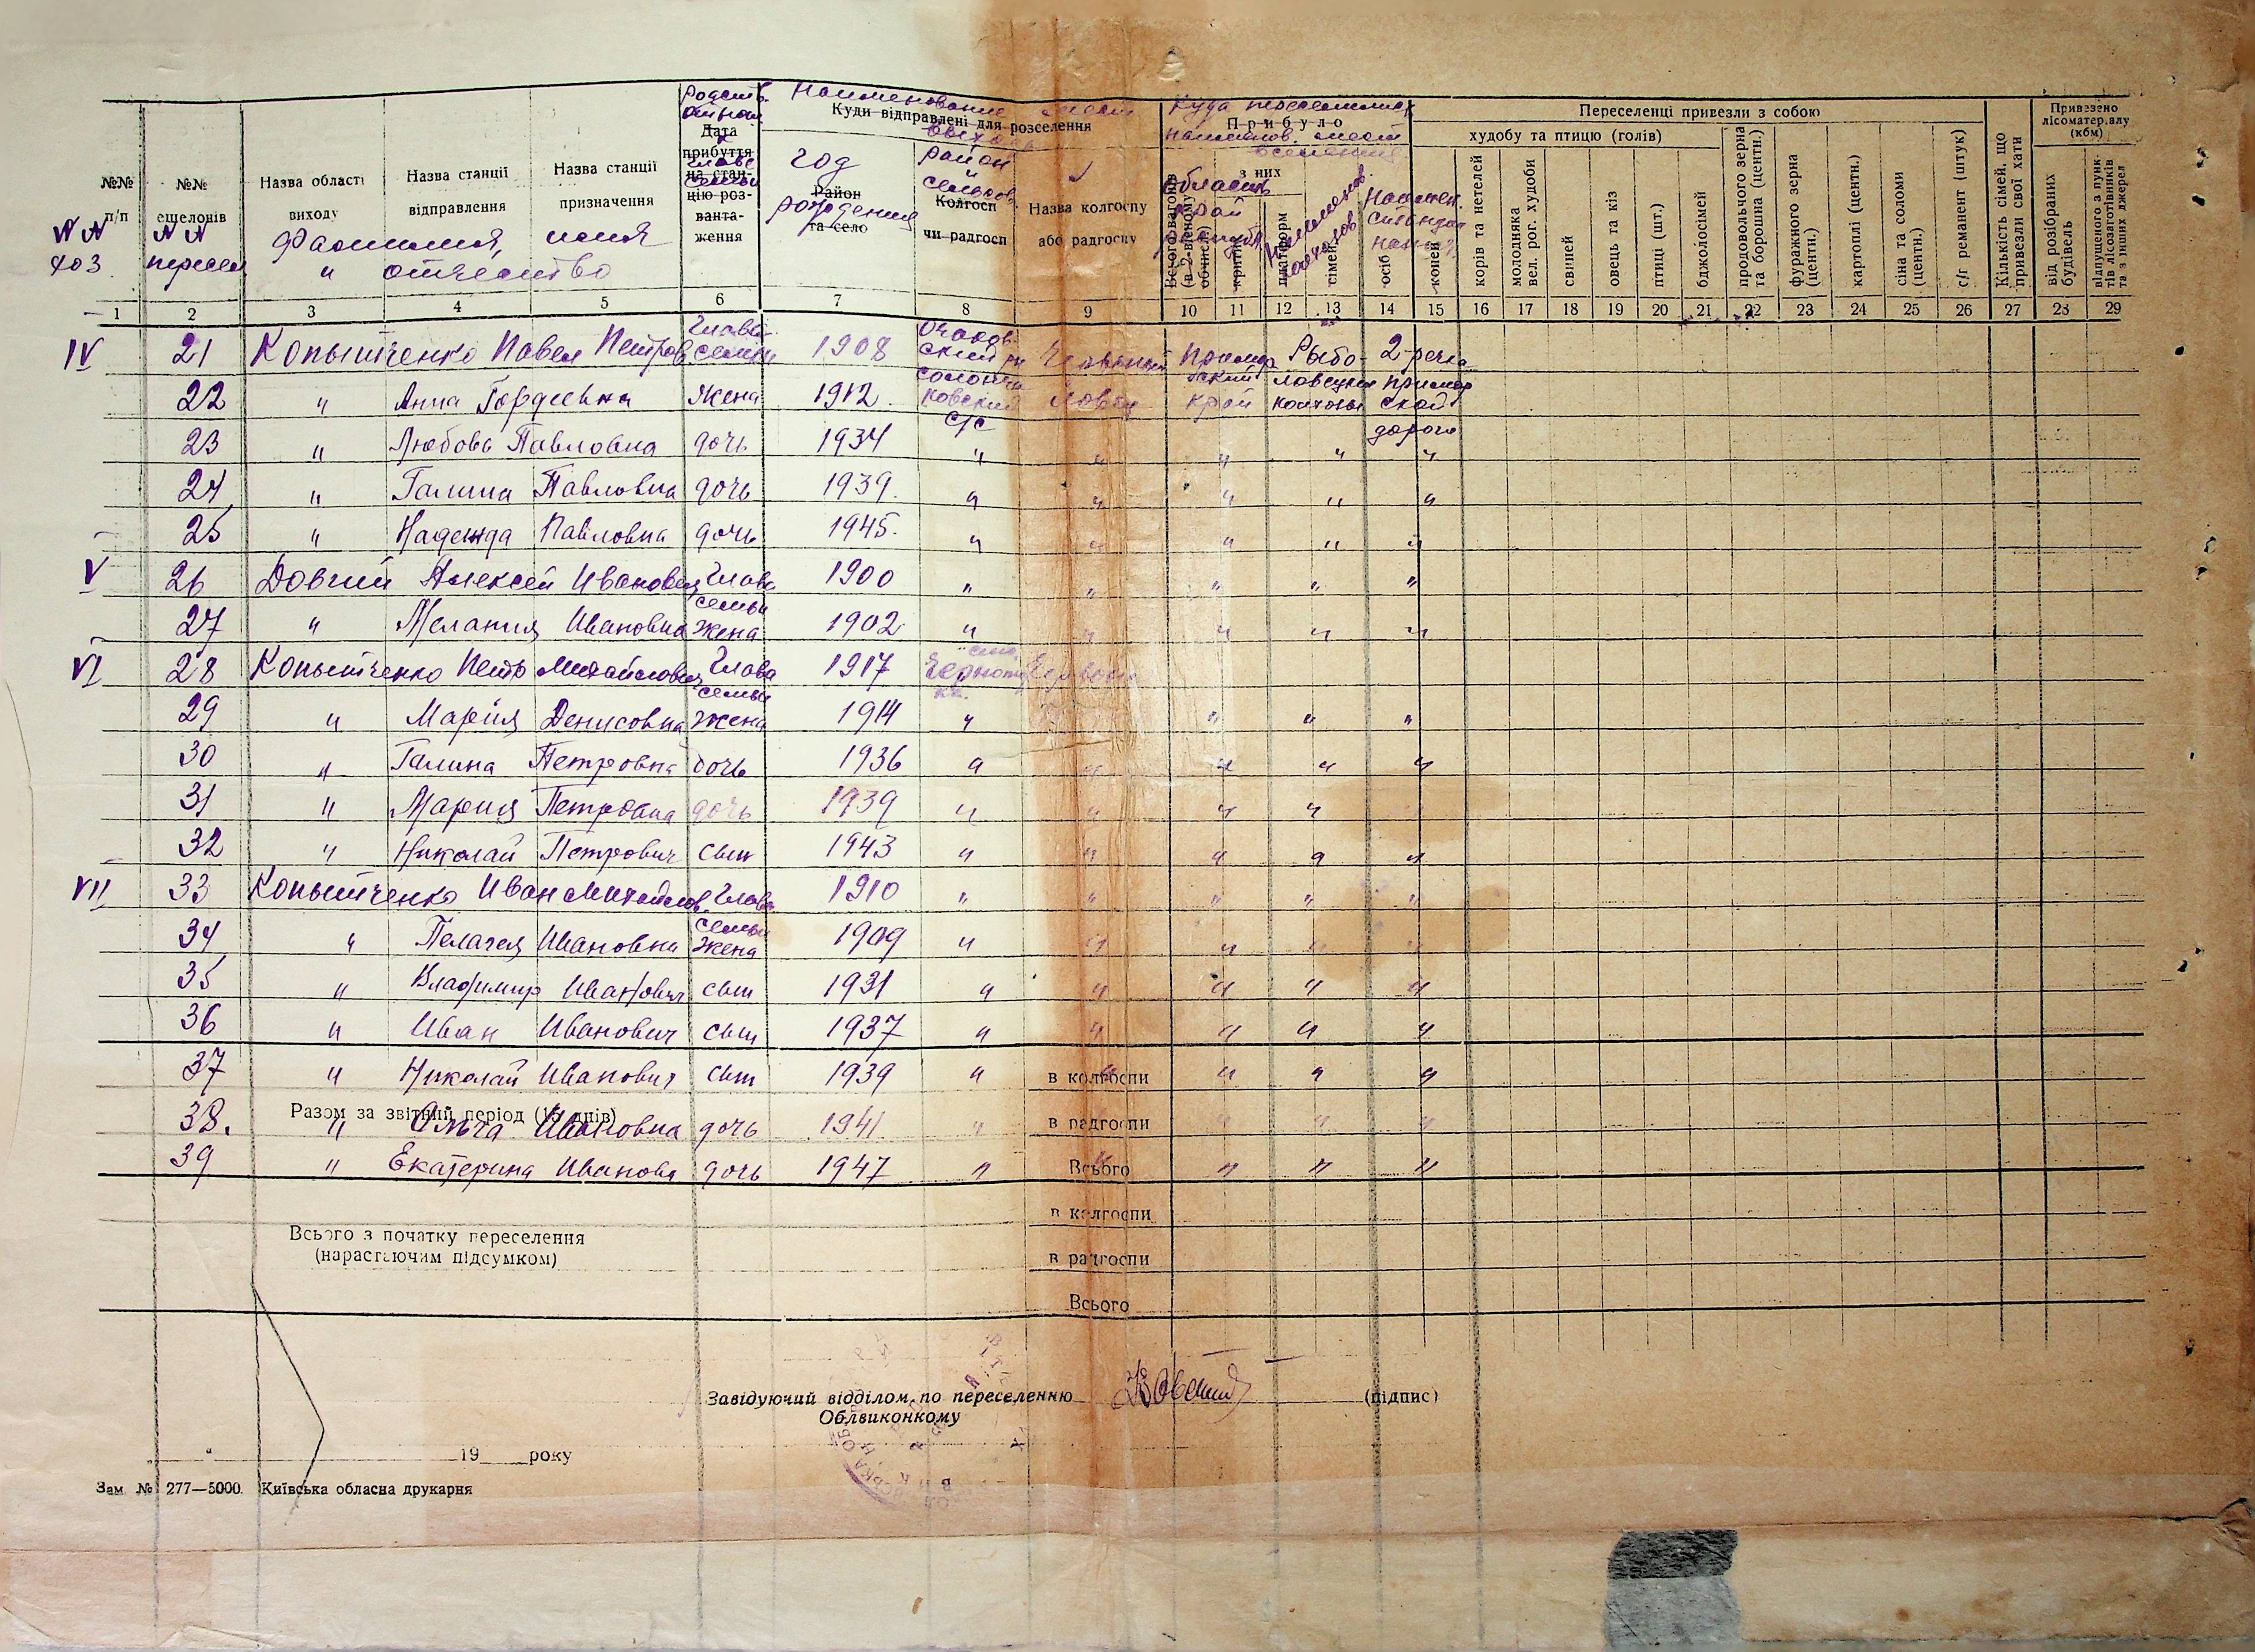 Родств. Наименование мест Куда переселились
Куди відправлені для розселення
Прибуло
Переселенці привезли з собою
Привезено лісоматеріалу (кбм)
наименов. мест вселения
худобу та птицю (голів)
№№ п/п
№№ ешелонів
Назва області виходу
Назва станції відправлення
Назва станції призначення
Дата прибуття на станцію розвантаження
главе семьи
год рождения
Район та село
район и сельсов.
Колгосп чи радгосп
Назва колгоспу або радгоспу
з них
Всього вагонів (в 2-вісному обчисл.)
область край
критих
платформ
сімей
осіб
коней
корів та нетелей
молодняка вел. рог. худоби
свиней
овець та кіз
птиці (шт.)
бджолосімей
продовольчого зерна та борошна (центн.)
фуражного зерна (центн.)
картоплі (центн.)
сіна та соломи (центн.)
с/г реманент (штук)
Кількість сімей, що привезли свої хати
від розібраних будівель
відпущеного з пунктів лісозаготівників та з інших джерел
№№ хоз
№№ пересел
Фамилия, имя
" отчество
1 2 3 4 5 6 7 8 9 10 11 12 13 14 15 16 17 18 19 20 21 22 23 24 25 26 27 28 29
IV 21 Копытченко Павел Петров глава семьи 1908 Очаковский рн Червоный Приморский Рыбо- 2 речка
22 " Анна Гордеевна жена 1912 ковский с/с ловец край ловецкие колхозы Приморской дороги
23 " Любовь Павловна дочь 1934 " " " " "
24 " Галина Павловна дочь 1939. " " " " "
25 " Надежда Павловна дочь 1945. " " " " "
V 26 Довгий Алексей Иванович глава семьи 1900 " " " " "
27 " Мелания Ивановна жена 1902 " " " " "
VI 28 Копытченко Петр Михайлович глава семьи 1917
29 " Мария Денисовна жена 1914 " " " "
30 " Галина Петровна дочь 1936 " " " " "
31 " Мария Петровна дочь 1939 " " " "
32 " Николай Петрович сын 1943 " " " " "
VII 33 Копытченко Иван Михайлов. глава семьи 1910 " " " " "
34 " Пелагея Ивановна жена 1909 " " " " "
35 " Владимир Иванович сын 1931 " " " " "
36 " Иван Иванович сын 1937 " " " " "
37 " Николай Иванович сын 1939 " в колгоспи " " "
Разом за звітний період (15 днів)
38. " Ольга Ивановна дочь 1941 " в радгоспи " " "
39 " Екатерина Иванова дочь 1947 " Всього " " "
в колгоспи
Всього з початку переселення
(нарастаючим підсумком)
в радгоспи
Всього
Завідуючий відділом по переселенню (підпис)
Облвиконкому
" " 19 року
Зам № 277—5000. Київська обласна друкарня